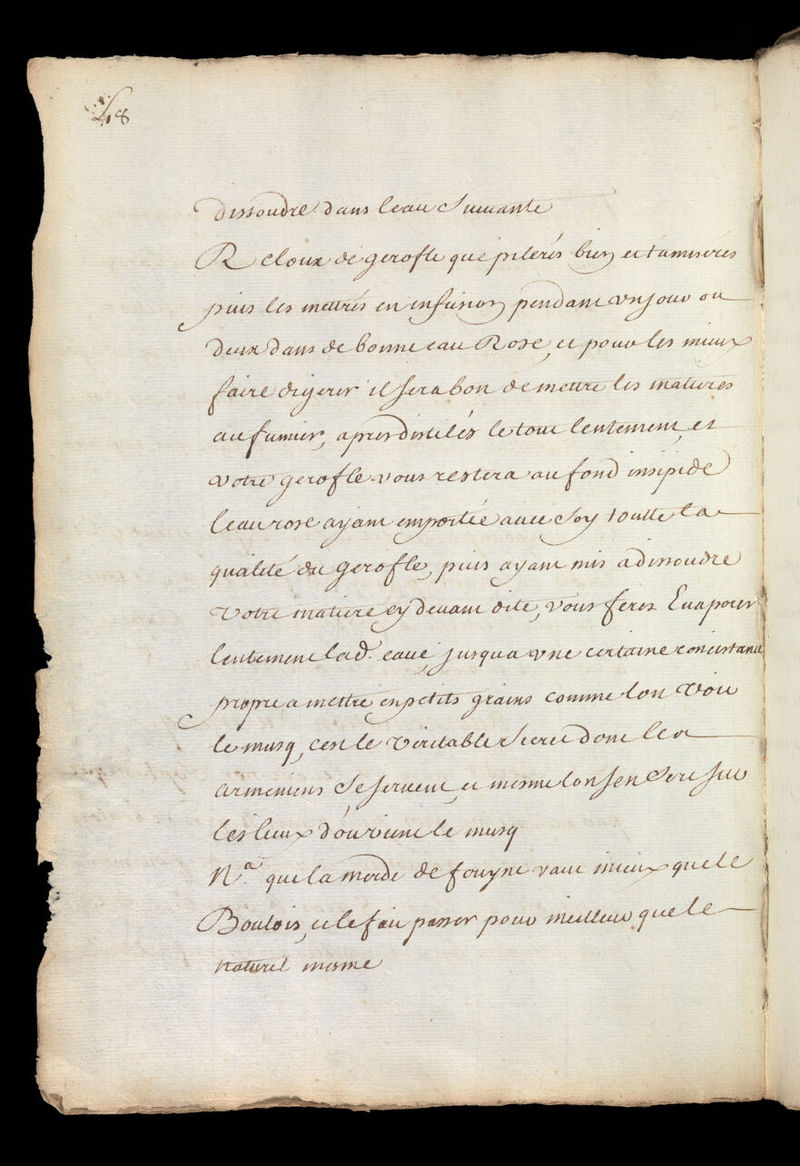 48
dissoudre dans leau Suivante
R cloux de gerofle que pilerés bien et tamiserés
puis les mettrés en infusion pendant un jour ou
deux dans de bonne eau Rose, et pour les mieux
faire digerer il sera bon de mettre les matieres
au fumier, apres distilés le tout lentement, et
votre gerofle vous restera au fond insipide
leau rose ayant emportée avec soy toutte la
qualité du gerofle, puis ayant mis a dissoudre
votre matiere cy devant dite, vous ferez Evaporer
lentement lad. eaue, jusqua une certaine concistance
propre a mettre en petits grains comme lon voit
le musq, cest le veritable Secret dont les
armeniens se servent, et mesme lon sen sert sur
les lieux d'ou vient le musq
N.a que la merde de fouyne vaut mieux que le
Boulois, et le fait passer pour meilleur que le
naturel mesme